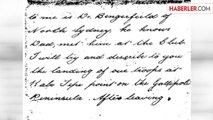 HABERLER.COM
to me is Dr. Dengerfield of
North Sydney, he knows
Dad, met him at the Club.
I will try and describe to you
the landing of our troops at
Kaba Tepe point on the Gallipoli
Peninsula. After leaving